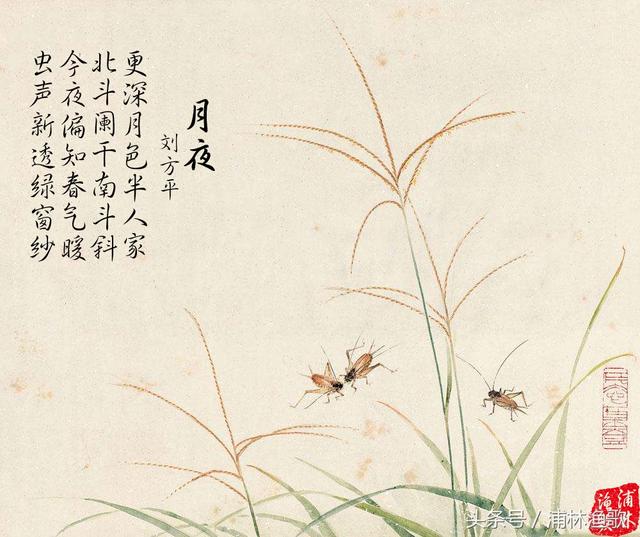 月夜
刘方平
更深月色半人家
北斗阑干南斗斜
今夜偏知春气暖
虫声新透绿窗纱
头条号/浦林渔歌